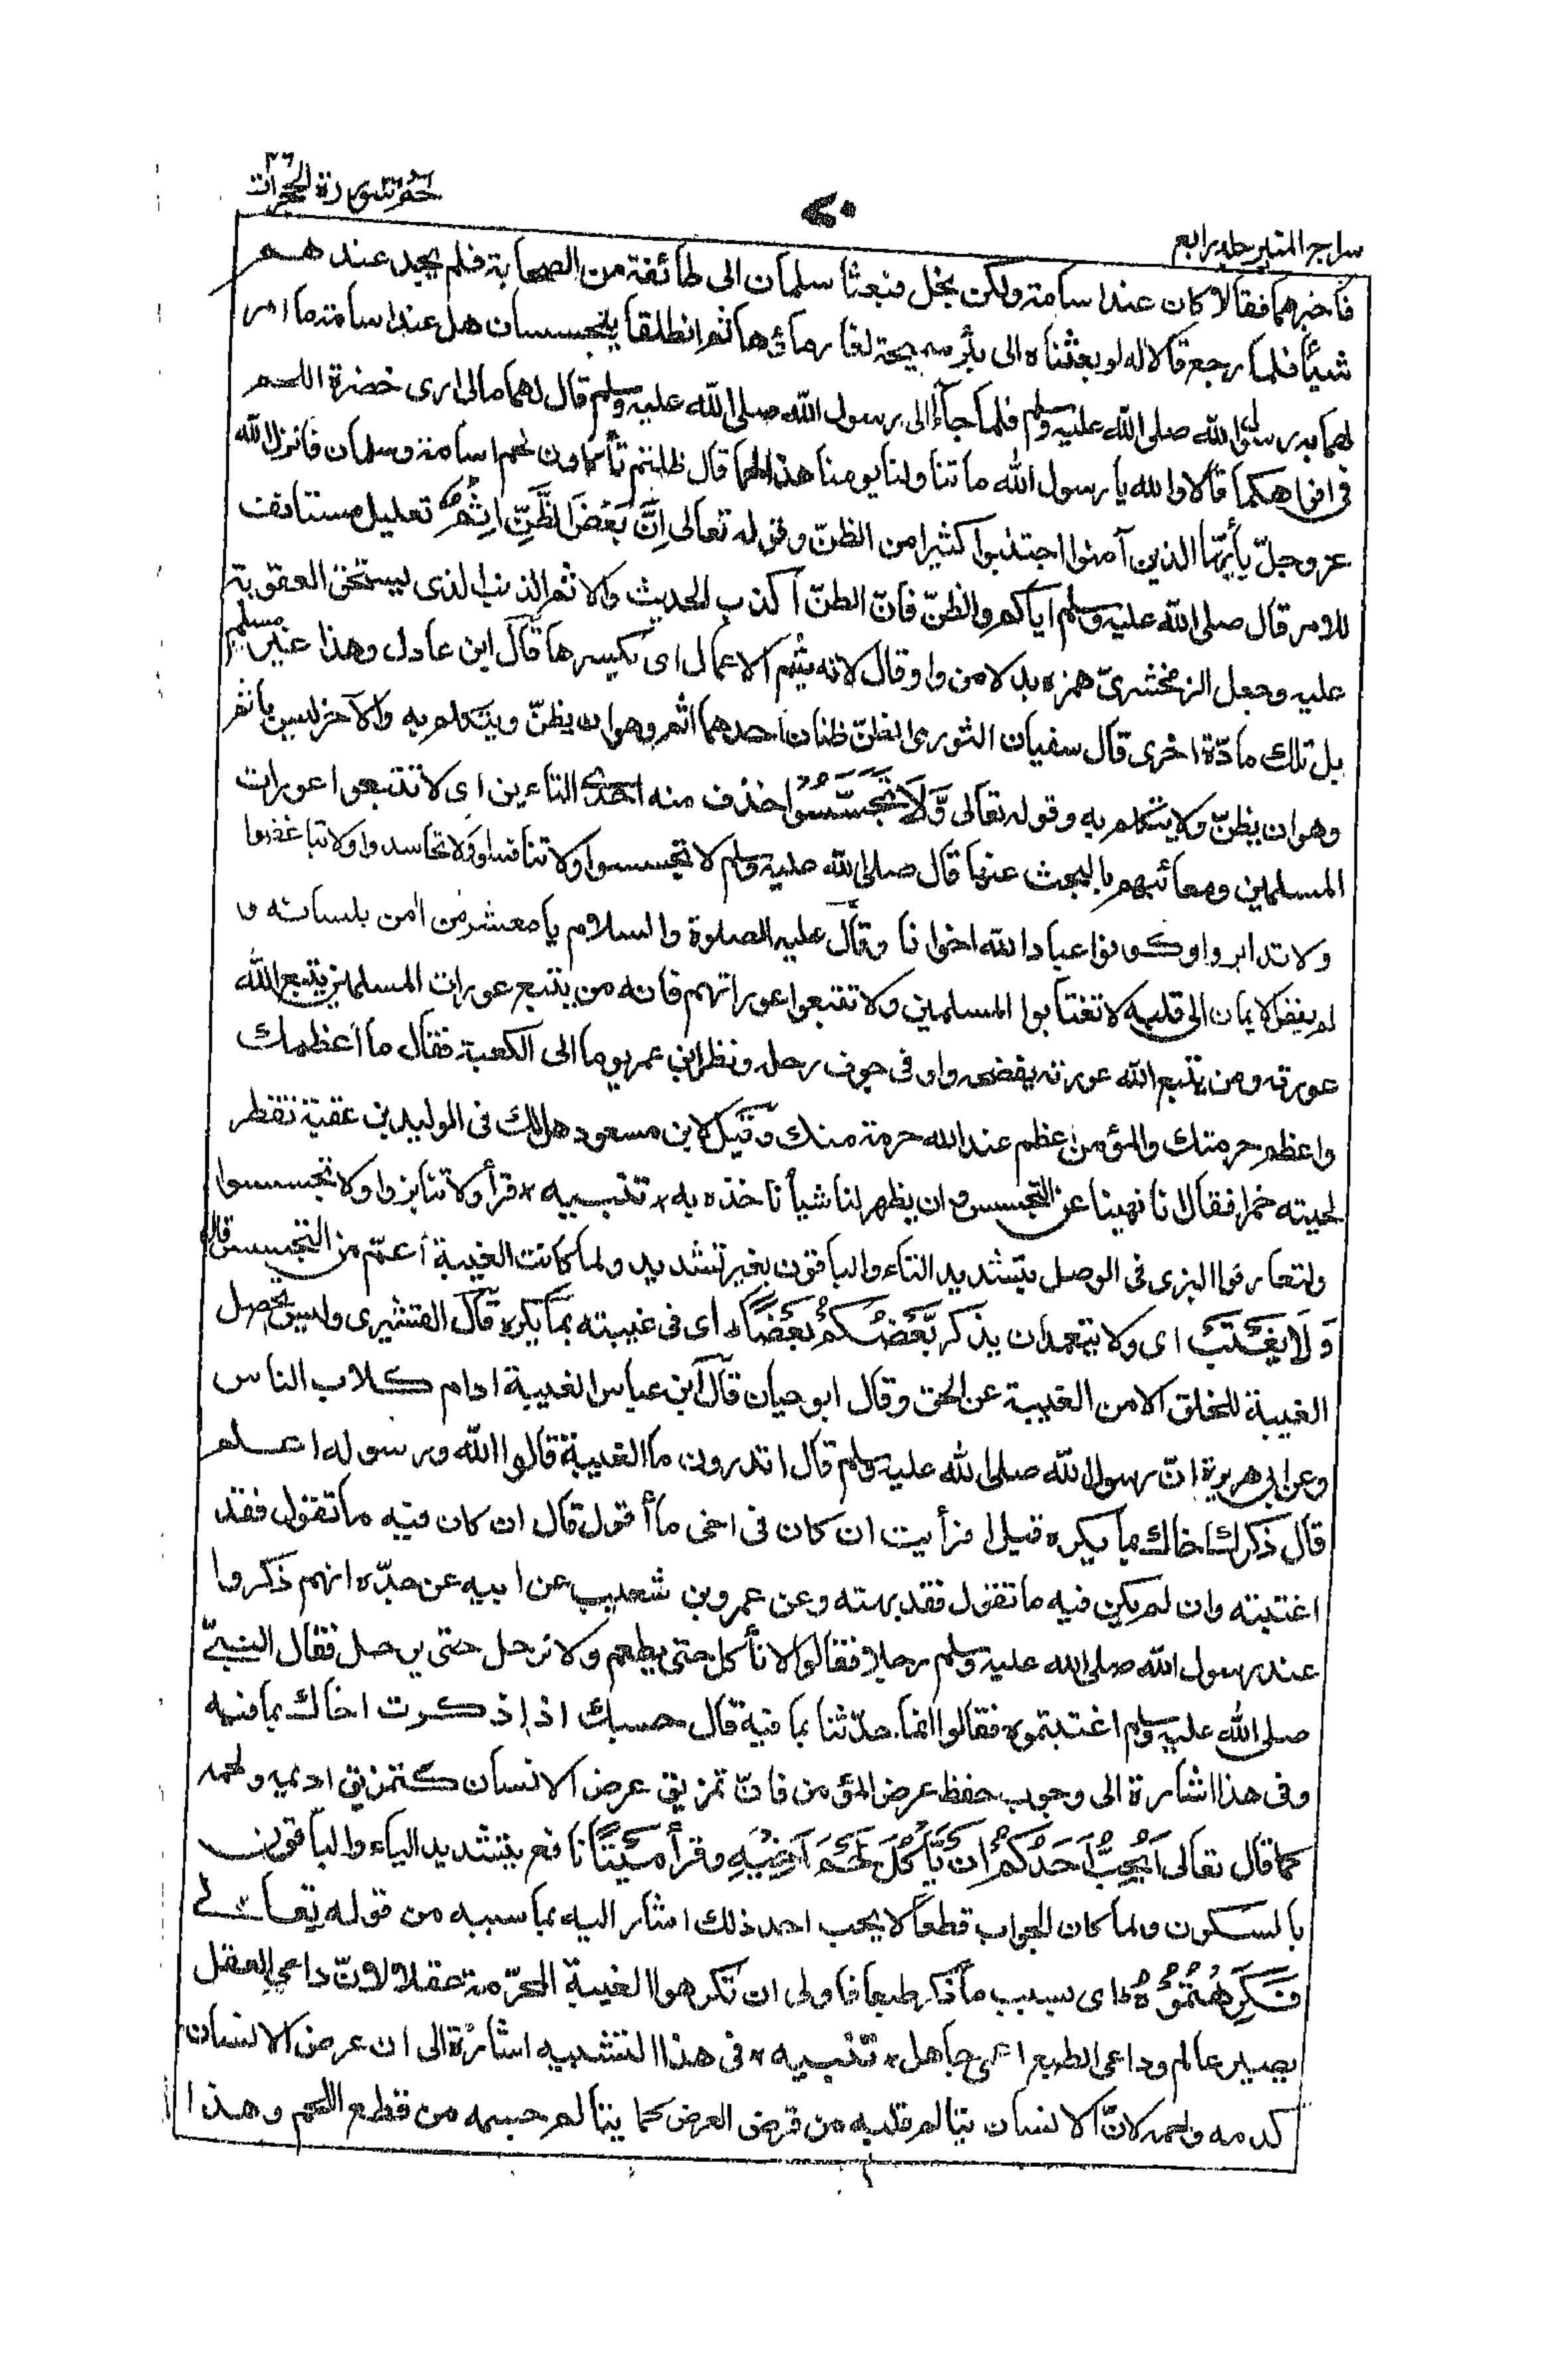 حم ٢٦ سورة الحجرات
٧٠
سراج المنير جلد رابع
فأخبرهما فقالا كان عند اسامة ولكن بخل فبعثا سلمان الى طائفة من الصحابة فلم يجد عندهم
شيأ فلما رجع قالا له لو بعثناه الى بئر سميحة لغار ماؤها ثم انطلقا يتجسسان هل عند اسامة ما امر
لهما به رسول الله صلى الله عليه وسلم فلما جاآ الى رسول الله صلى الله عليه وسلم قال لهما مالى ارى خضرة اللحم
فى افواهكما قالا والله يا رسول الله ما تناولنا يومنا هذا لحما قال ظللتم تأكلون لحم اسامة وسلمان فانزل الله
عز وجلّ يأيّها الذين آمنوا اجتنبوا كثيرا من الظنّ وقوله تعالى اِنَّ بَعْضَ الظَّنِّ اِثْمٌ تعليل مستانف
للامر قال صلى الله عليه وسلم اياكم والظنّ فانّ الظنّ أكذب الحديث والاثم الذنب الذى يستحق العقوبة
عليه وجعل الزمخشرىّ همزه بدلا من واو وقال لانه يثم الاعمال اى يكسرها قال ابن عادل وهذا غير مسلم
بل تلك مادّة اخرى قال سفيان الثورى الظنّ ظنان احدهما اثم وهو ان يظنّ ويتكلم به والآخر ليس باثم
وهو ان يظنّ ولا يتكلم به وقوله تعالى وَّلَا تَجَسَّسُوْا حذف منه احدى التاءين اى لا تتبعوا عورات
المسلمين ومعائبهم بالبحث عنها قال صلى الله عليه وسلم لا تجسسوا ولا تنافسوا ولا تحاسدوا ولا تباغضوا
ولا تدابروا وكونوا عباد الله اخوانا وقال عليه الصلوة والسلام يا معشر من امن بلسانه و
لم يفض الايمان الى قلبه لا تغتابوا المسلمين ولا تتبعوا عوراتهم فانه من يتبع عورات المسلمين يتبع الله
عورته ومن يتبع الله عورته يفضحه ولو فى جوف رحله ونظر ابن عمر يوما الى الكعبة فقال ما أعظمك
واعظم حرمتك والمؤمن اعظم عند الله حرمة منك وقيل لابن مسعود هل لك فى الوليد بن عقبة تقطر
لحيته خمرا فقال انا نهينا عن التجسس وان يظهر لنا شيأ ناخذه به * تنبيه * قرأ ولا تنابزوا ولا تجسسوا
ولتعارفوا البزى فى الوصل بتشديد التاء والباقون بغير تشديد ولما كانت الغيبة أعمّ من التجسس قال
وَلَا يَغْتَبْ اى ولا يتعمد ان يذكر بَّعْضُكُمْ بَعْضًا اى فى غيبته بما يكره قال القشيرى وليس تحصل
الغيبة للخلق الا من الغيبة عن الحق وقال ابو حيان قال ابن عباس الغيبة ادام كلاب الناس
وعن ابى هريرة انّ رسول الله صلى الله عليه وسلم قال اتدرون ما الغيبة قالوا الله ورسوله اعلم
قال ذكرك اخاك بما يكره قيل افرأيت ان كان فى اخى ما أقول قال ان كان فيه ما تقول فقد
اغتبته وان لم يكن فيه ما تقول فقد بهته وعن عمرو بن شعيب عن ابيه عن جدّه انهم ذكروا
عند رسول الله صلى الله عليه وسلم رجلا فقالوا لا نأكل حتى يطعم ولا نرحل حتى يرحل فقال النبىّ
صلى الله عليه وسلم اغتبتموه فقالوا انما حدّثنا بما فيه قال حسبك اذا ذكرت اخاك بما فيه
وفى هذا اشارة الى وجوب حفظ عرض المؤمن فانّ تمزيق عرض الانسان كتمزيق اديمه ولحمه
كما قال تعالى اَيُحِبُّ اَحَدُكُمْ اَنْ يَّاْكُلَ لَحْمَ اَخِيْهِ وقرأ مَيْتًا نافع بتشديد الياء والباقون
بالسكون ولما كان الجواب قطعا لا يحب احد ذلك اشار اليه بما سببه من قوله تعالى
فَكَرِهْتُمُوْهُ اى بسبب ما ذكر طبعا فاولى ان تكرهوا الغيبة المحرّمة عقلا لانّ داعى العقل
بصير عالم وداعى الطبع اعمى جاهل * تنبيه * فى هذا التشبيه اشارة الى ان عرض الانسان
كدمه ولحمه لانّ الانسان يتالم قلبه من قرض العرض كما يتالم جسمه من قطع اللحم وهذا